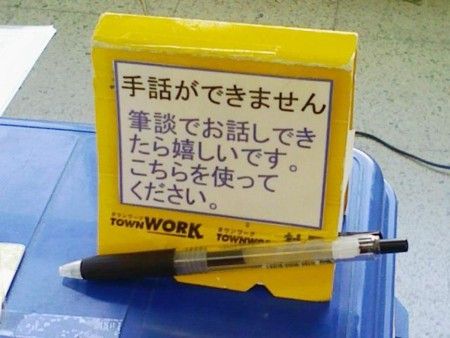 手話ができません
筆談でお話しでき
たら嬉しいです。
こちらを使って
ください。
タウンワーク
TOWNWORK
TOWNWORK